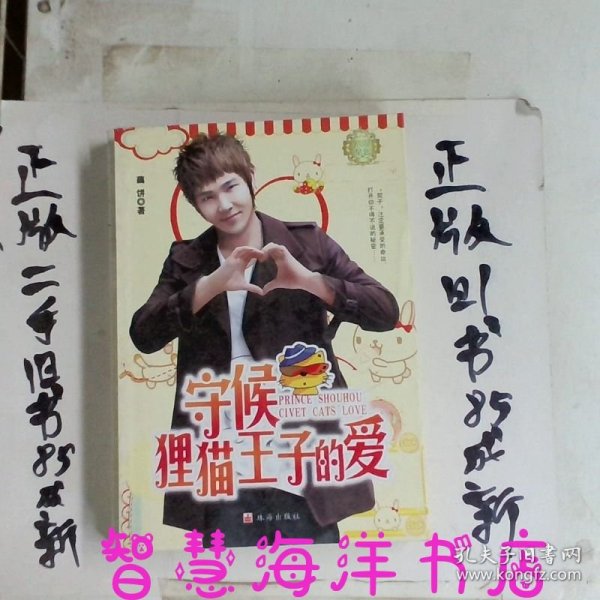 正版二手旧书85成新
藕饼◎著
"院子,注定要承受的命运
打开你不得不说的秘密……
守候
PRINCE SHOUHOU
CIVET CATS LOVE
狸猫王子的爱
珠海出版社
正版旧书85成新
智慧海洋书店
孔夫子旧书网
www.kongfz.com